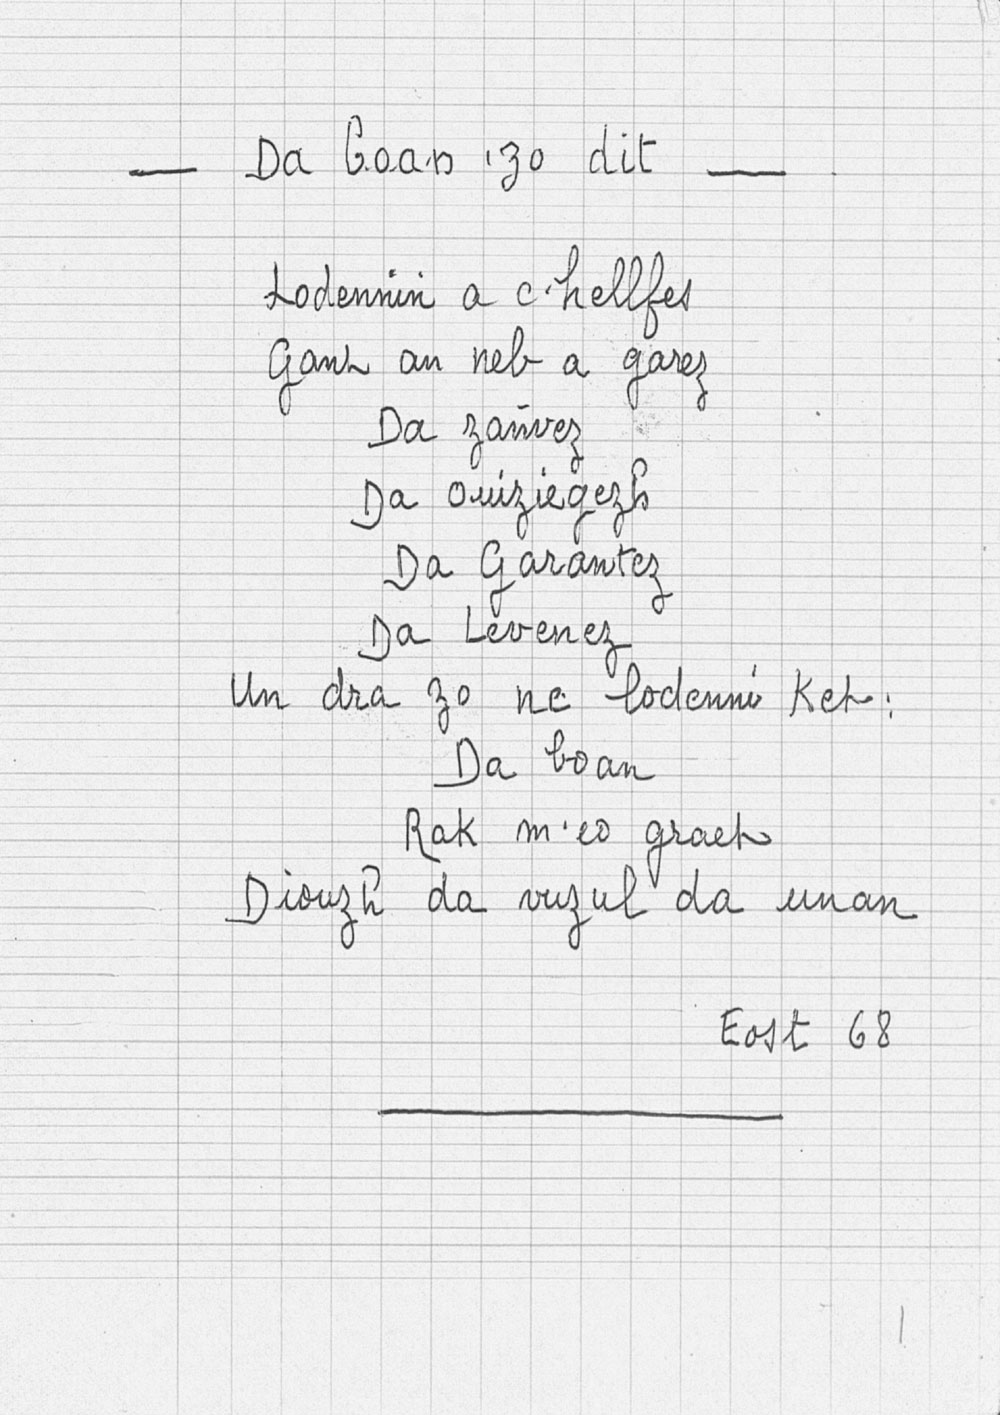 — Da Boan zo dit —
Lodennin a c'hellfes
Gant an neb a garez
Da zañvez
Da ouiziegezh
Da Garantez
Da Levenez
Un dra zo ne lodenni ket:
Da boan
Rak m'eo graet
Diouzh da vuzul da unan
Eost 68
1